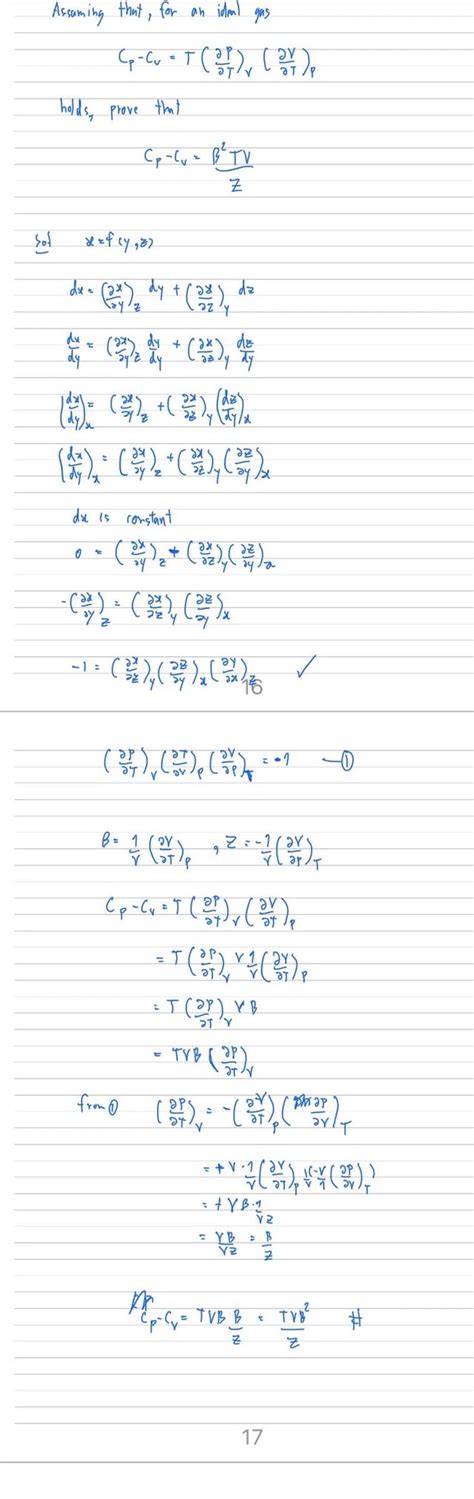 Assuming that, for an ideal gas
Cp-Cv = T (∂P/∂T)v (∂V/∂T)p
holds, prove that
Cp-Cv = B²TV/Z
Sol x=f(y,z)
dx = (∂x/∂y)z dy + (∂x/∂z)y dz
dx/dy = (∂x/∂y)z dy/dy + (∂x/∂z)y dz/dy
(dx/dy)x = (∂x/∂y)z + (∂x/∂z)y (dz/dy)x
(dx/dy)x = (∂x/∂y)z + (∂x/∂z)y (∂z/∂y)x
dx is constant
0 = (∂x/∂y)z + (∂x/∂z)y (∂z/∂y)x
-(∂x/∂y)z = (∂x/∂z)y (∂z/∂y)x
-1 = (∂x/∂z)y (∂z/∂y)x (∂y/∂x)z ✓
16
(∂P/∂T)v (∂T/∂V)p (∂V/∂P)T = -1 — ①
B = 1/V (∂V/∂T)p , Z = -1/V (∂V/∂P)T
Cp-Cv = T (∂P/∂T)v (∂V/∂T)p
= T (∂P/∂T)v V 1/V (∂V/∂T)p
= T (∂P/∂T)v V B
= TVB (∂P/∂T)v
from ① (∂P/∂T)v = -(∂V/∂T)p (∂P/∂V)T
= +V · 1/V (∂V/∂T)p 1/V (-V/1 (∂P/∂V)T)
= +VB · 1/VZ
= VB/VZ = B/Z
Cp-Cv = TVB B/Z = TVB²/Z #
17